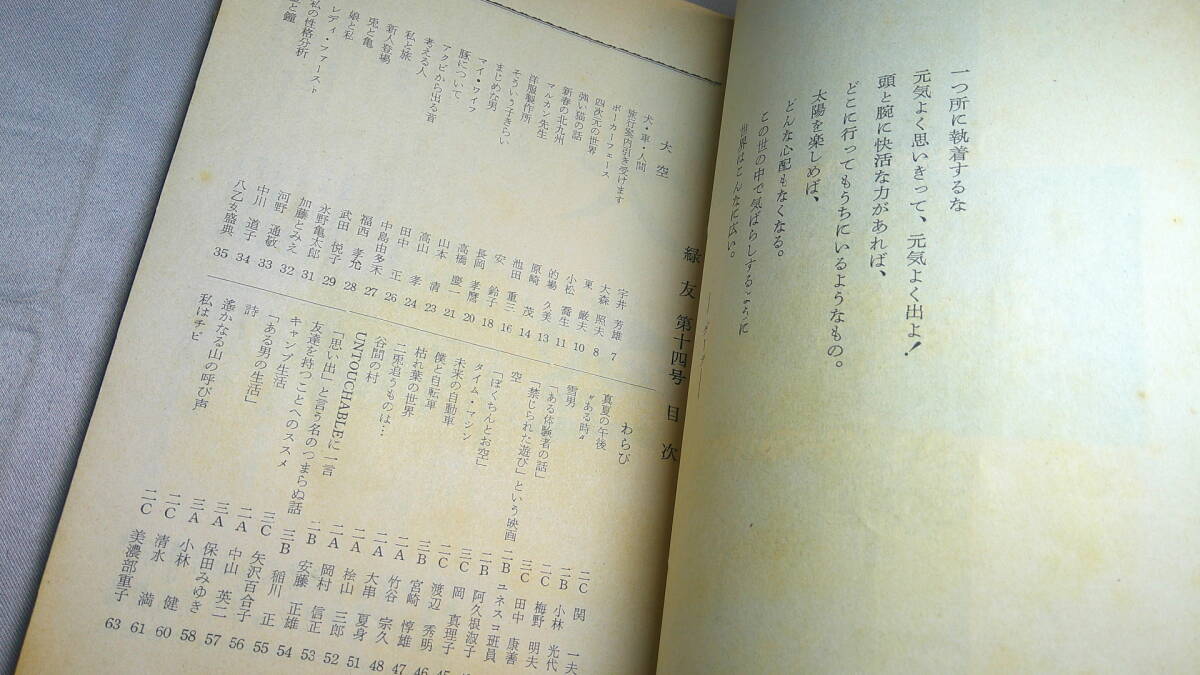 一つ所に執着するな
元気よく思いきって、元気よく出よ!
頭と腕に快活な力があれば、
どこに行ってもうちにいるようなもの。
太陽を楽しめば、
どんな心配もなくなる。
この世の中で気ばらしするように
世界はこんなに広い。
緑友 第十四号 目次
大空
犬・車・人間 宇井 芳雄 7
旅行案内引き受けます 大森 照夫 8
ポーカーフェース 東 厳夫 10
四次元の世界 小松 喬生 11
強い猫の話 的場 久美 13
新春の北九州 原崎 茂 14
マルカン先生 池田 重三 16
洋服製作所 安 鈴子 18
そういう子きらい 長岡 孝麿 20
まじめな男 高橋 慶一 21
マイ・ワイフ 山本 清 23
豚について 高山 孝 24
アクビから出る音 田中 正 26
考える人 中島由多禾 27
私と旅 福西 孝允 28
新人登場 武田 悦子 29
兎と亀 永野亀太郎 31
娘と私 加藤とみえ 32
レディ・ファースト 河野 通敏 33
私の性格分析 中川 道子 34
と鐘 八乙女盛典 35
わらび
真夏の午後 二C 関 一夫
"ある時" 二B 小林 光代
雪男 二C 梅野 明夫
「ある体験者の話」 三C 田中 康善
「禁じられた遊び」という映画 二B ユネスコ班員
空 二B 阿久根淑子
「ぼくちんとお空」 三C 岡 真理子
タイム・マシン 二C 渡辺 秀明 45
未来の自動車 三B 宮崎 惇雄 46
僕と自転車 二A 竹谷 宗久 47
枯れ葉の世界 二A 大串 夏身 48
二兎追うものは… 二A 桧山 三郎 51
谷間の村 二A 岡村 信正 52
UNTOUCHABLEに一言 二B 安藤 正雄 53
「思い出」と言う名のつまらぬ話 三B 稲川 正 54
友達を持つことへのススメ 三C 矢沢百合子 55
キャンプ生活 二A 中山 英二 56
「ある男の生活」 三A 保田みゆき 57
詩 三A 小林 健 58
遙かなる山の呼び声 二C 清水 満 60
私はチビ 二C 美濃部重子 61
63